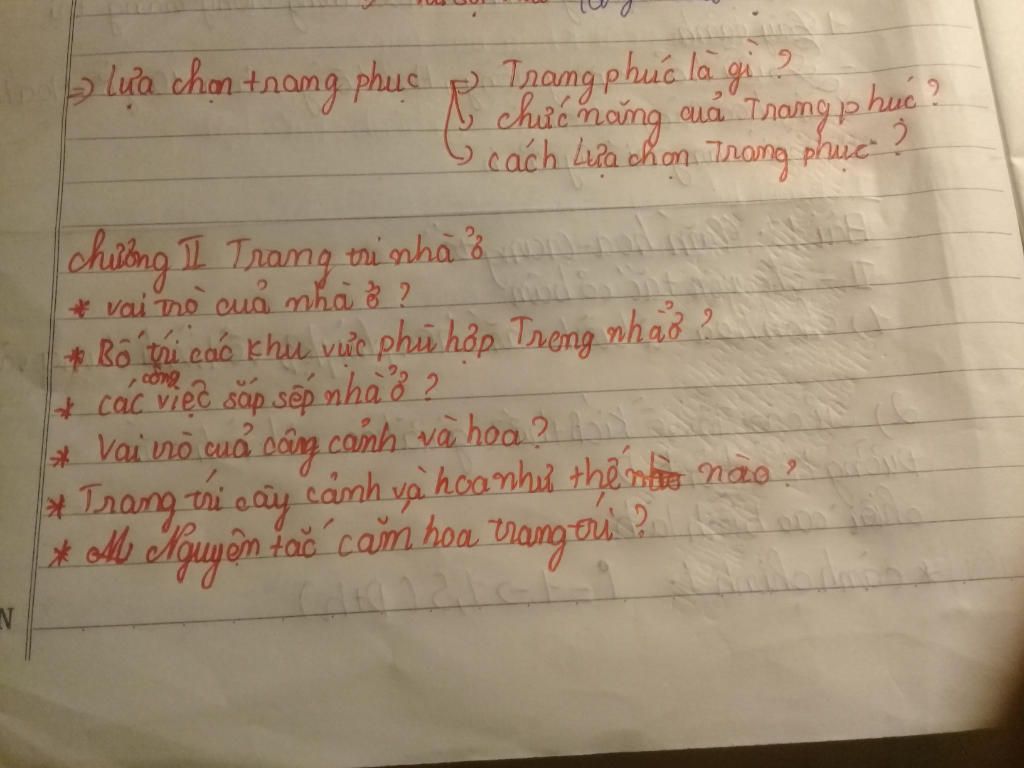 => Lựa chọn trang phục
-> Trang phúc là gì ?
-> chức năng quả Trang phuć ?
-> cách Lựa chọn Trang phục ?
Chường II Trang trí nhà ở
* vai trò cuả nhà ở ?
* Bố trí các khu vực phù hợp Trong nhà ở ?
* các công việc sắp sếp nhà ở ?
* Vai trò cuả câng cảnh và hoa ?
* Trang trí cây cảnh và hoa như thế nào ?
* Nguyên tắc cắm hoa trang trí ?
N